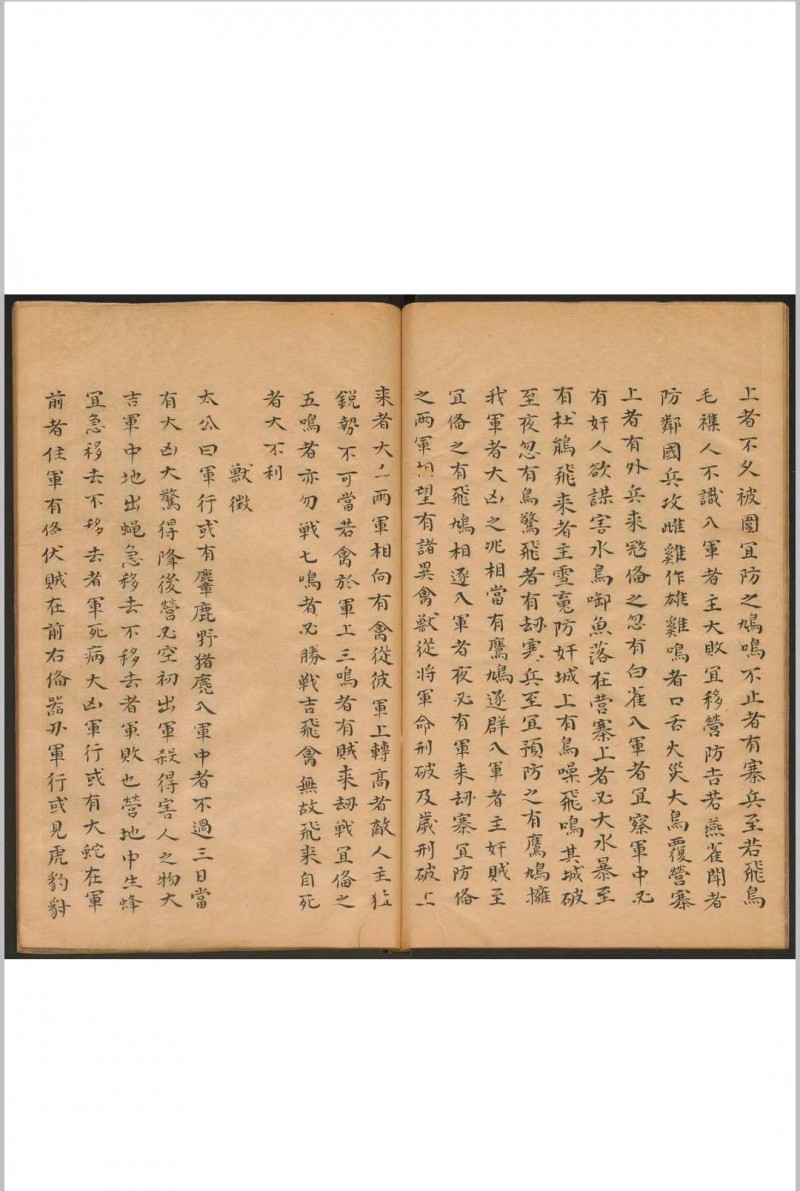 上者不久被圍宜防之鳩鳴不止者有寨兵至若飛鳥
毛襍人不識入軍者主大敗宜移營防吉若燕雀鬧者
防鄰國兵攻雌雞作雄雞鳴者口舌火災大鳥覆營寨
上者有外兵來宜備之忽有白雀入軍者宜察軍中必
有奸人欲謀害水鳥啣魚落在營寨上者必大水暴至
有杜鵑飛來者主防奸城上有鳥噪飛鳴其城破
至夜忽有鳥驚飛者有劫寨兵至宜預防之有鷹鳩擁
我軍者大凶之兆相當有鷹鳩逐群入軍者主奸賊至
宜俻之有飛鳩相逐入軍者夜必有軍来劫寨宜防俻
之两軍相望有諸異禽獸從将軍命刑破及歲刑破上
来者大凶兩軍相向有禽從彼軍上轉高者敵人主猛
銳勢不可當若禽於軍上三鳴者有賊来劫戰宜俻之
五鳴者亦勿戰七鳴者必勝戰吉飛禽無故飛来自死
者大不利
獸徵
太公曰軍行或有麞鹿野猪麂入軍中者不過三日當
有大凶大驚得降後營必空初出軍殺得害人之物大
吉軍中地出蝇急移去不移去者軍敗也營地中生蜂
宜急移去不移去者軍死病大凶軍行或有大蛇在軍
前者住軍有俻伏賊在前右俻噐爾軍行或見虎豹豺